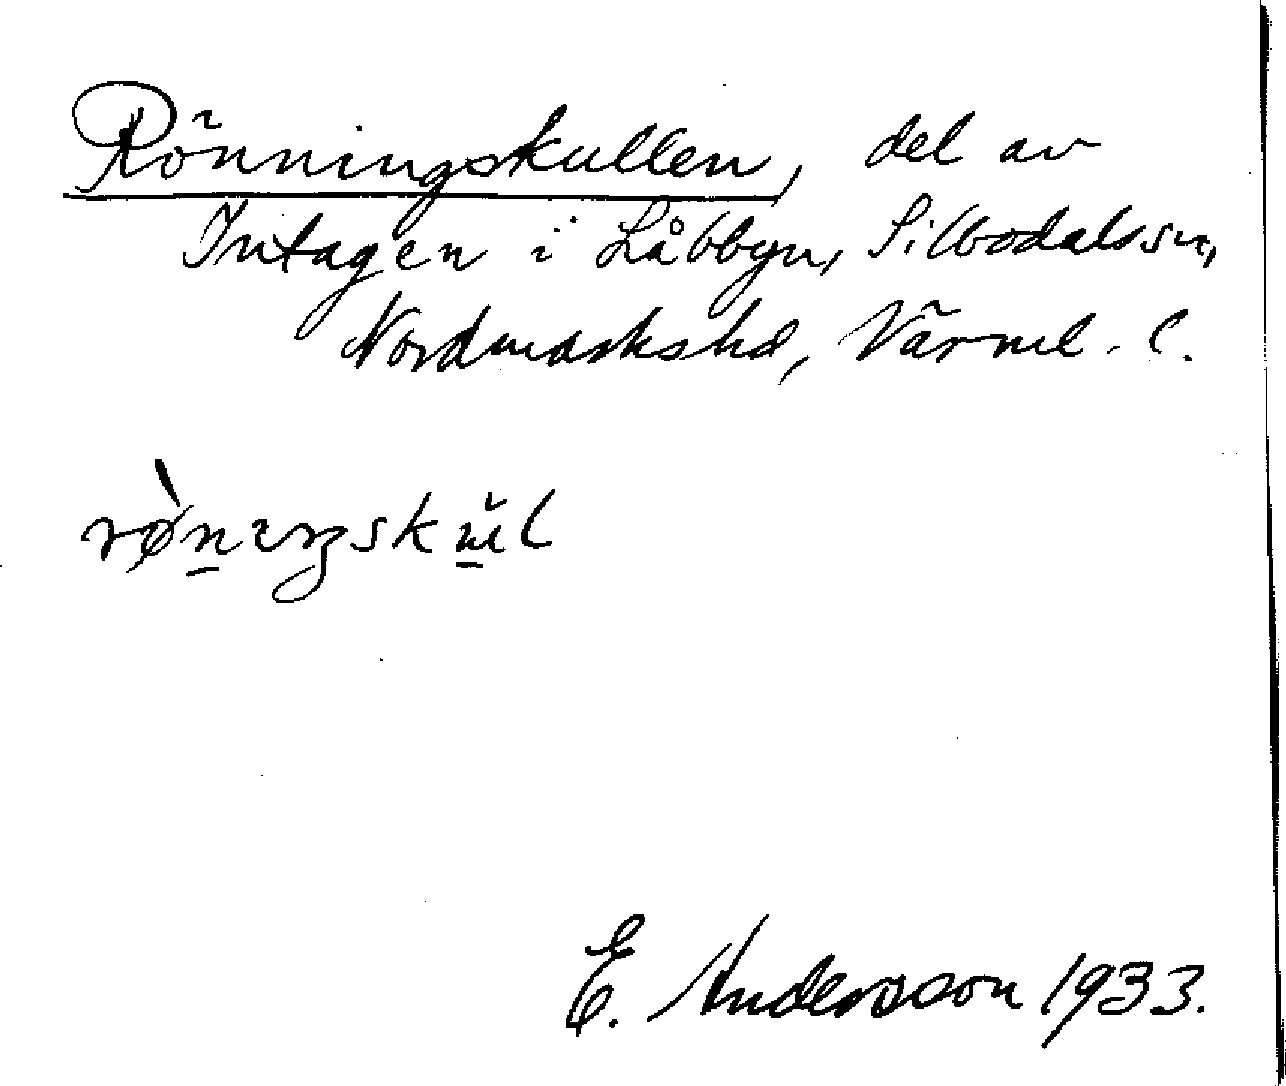 Rönningskullen, del av
Intagen i Låbbyn, Silbodals sn,
Nordmarkshd, Värml. l.
rø̀nıŋskŭl
E. Andersson 1933.